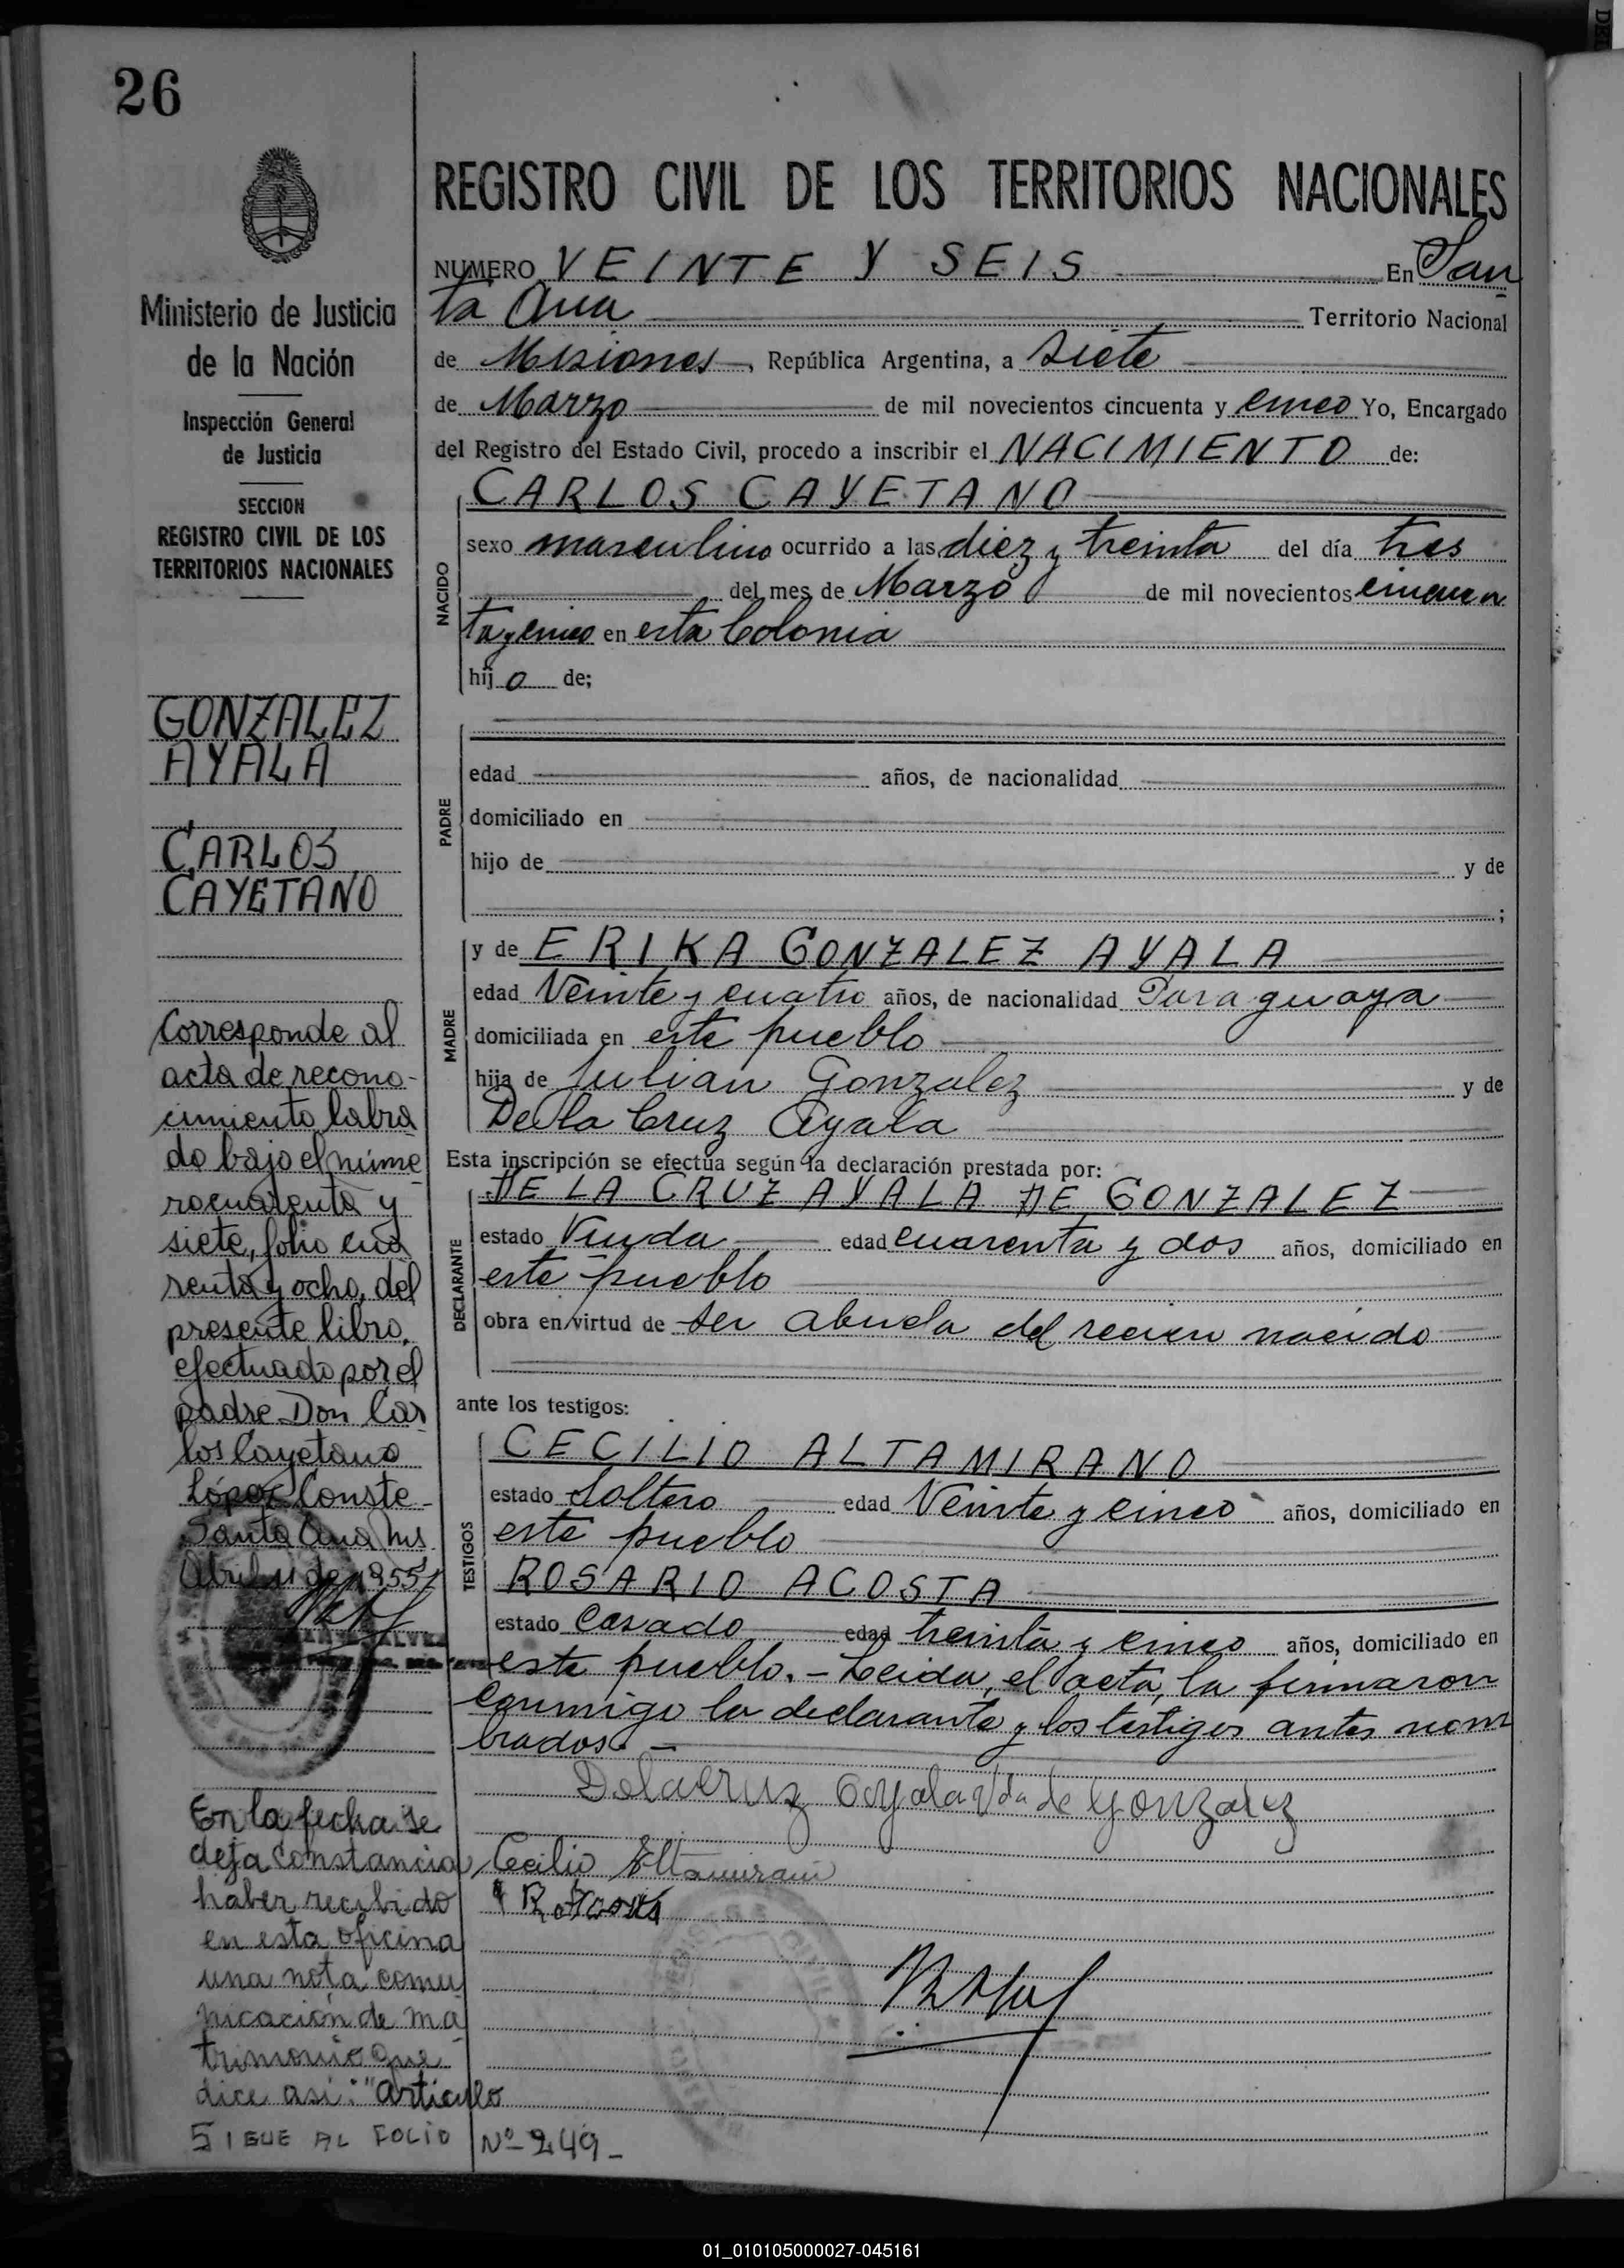 26
Ministerio de Justicia
de la Nación
Inspección General
de Justicia
SECCION
REGISTRO CIVIL DE LOS
TERRITORIOS NACIONALES
GONZALEZ
AYALA
CARLOS
CAYETANO
Corresponde al
acta de recono-
cimiento labra
do bajo el núme
ro cuarenta y
siete, folio cua
renta y ocho, del
presente libro,
efectuado por el
padre Don Car
los Cayetano
López Conste
Santa Ana Ms.
Abril 11 de 1955
En la fecha se
deja constancia
haber recibido
en esta oficina
una nota comu
nicación de ma
trimonio que
dice así: "Artículo
SIGUE AL FOLIO Nº 249-
REGISTRO CIVIL DE LOS TERRITORIOS NACIONALES
NUMERO VEINTE Y SEIS En San
ta Ana Territorio Nacional
de Misiones, República Argentina, a siete
de Marzo de mil novecientos cincuenta y cinco Yo, Encargado
del Registro del Estado Civil, procedo a inscribir el NACIMIENTO de:
NACIDO
CARLOS CAYETANO
sexo masculino ocurrido a las diez y treinta del día tres
del mes de Marzo de mil novecientos cincuen
ta y cinco en esta Colonia
hij o de;
PADRE
edad años, de nacionalidad
domiciliado en
hijo de y de
;
MADRE
y de ERIKA GONZALEZ AYALA
edad Veinte y cuatro años, de nacionalidad Paraguaya
domiciliada en este pueblo
hija de Julian Gonzalez y de
De la Cruz Ayala
Esta inscripción se efectúa según la declaración prestada por:
DECLARANTE
DE LA CRUZ AYALA DE GONZALEZ
estado Viuda edad cuarenta y dos años, domiciliado en
este pueblo
obra en virtud de ser abuela del recien nacido
ante los testigos:
TESTIGOS
CECILIO ALTAMIRANO
estado Soltero edad Veinte y cinco años, domiciliado en
este pueblo
ROSARIO ACOSTA
estado casado edad treinta y cinco años, domiciliado en
este pueblo. - Leida, el acta, la firmaron
conmigo la declarante y los testigos antes nom
brados. -
Delacruz Ayala Vda de Gonzalez
Cecilio Altamirano
R. Acosta
01_010105000027-045161